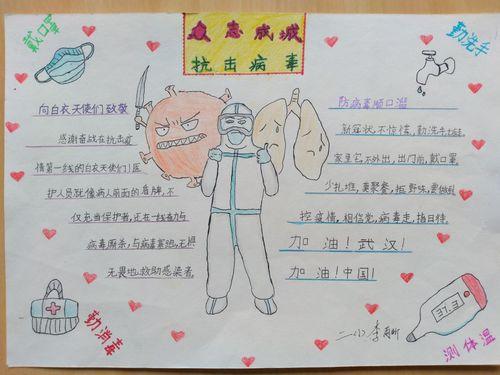 众志成城
抗击病毒
戴口罩
勤洗手
向白衣天使们致敬
感谢奋战在抗击疫
情第一线的白衣天使们!医
护人员就像病人前面的盾牌,不
仅充当保护者,还在一线奋力与
病毒厮杀,与病毒害绝,无
无畏地救助感染者.
防病毒顺口溜
新冠状,不惊慌,勤洗手
家里宅,不外出,出门前,戴口罩.
少扎堆,莫聚餐,拒野味,
控疫情,相信党,病毒走,指日待.
加油!武汉!
加油!中国!
勤消毒
测体温
二小 李雨昕